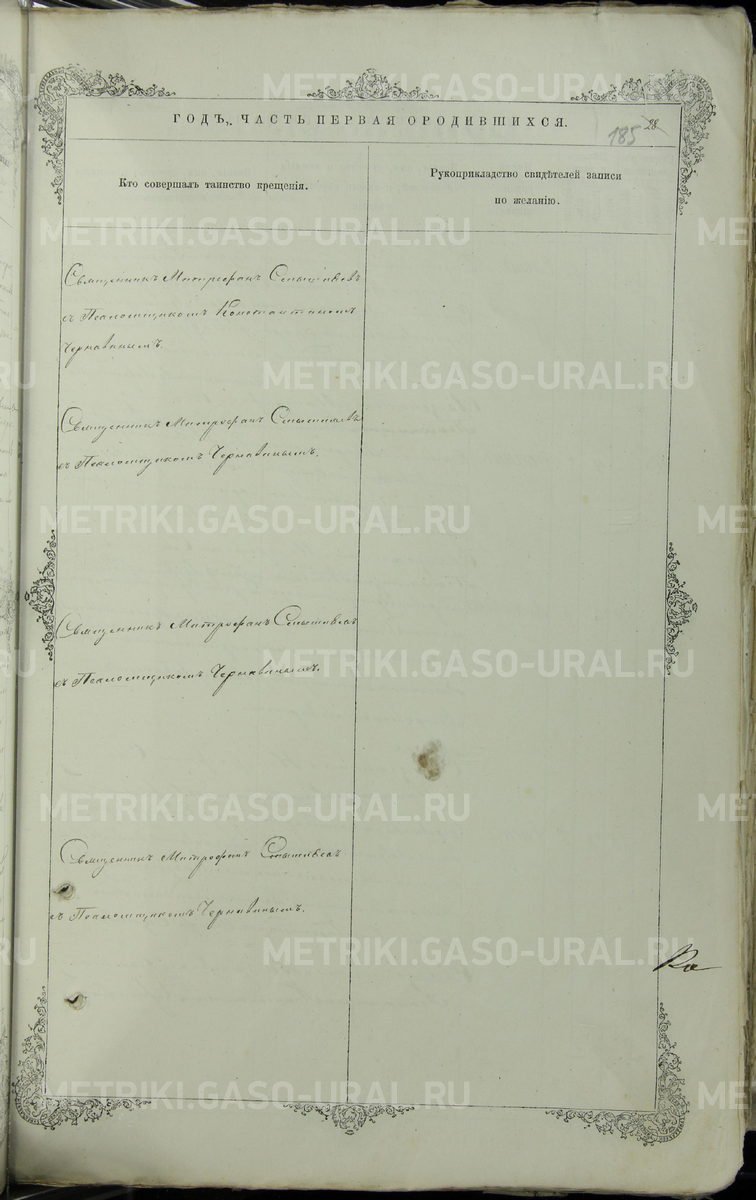 ГОДЪ, ЧАСТЬ ПЕРВАЯ О РОДИВШИХСЯ.
185 28
Кто совершалъ таинство крещенія.
Рукоприкладство свидѣтелей записи
по желанію.
Священникъ Митрофанъ
съ Псаломщикомъ Константиномъ
Чернавинымъ.
Священникъ Митрофанъ
съ Псаломщикомъ Чернавинымъ.
Священникъ Митрофанъ
съ Псаломщикомъ Чернавинымъ.
Священникъ Митрофанъ
съ Псаломщикомъ Чернавинымъ.
METRIKI.GASO-URAL.RU